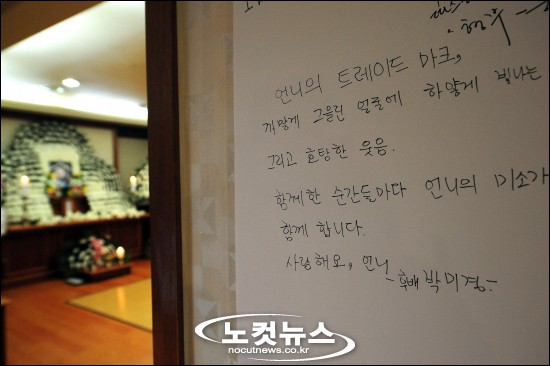 언니의 트레이드 마크,
까맣게 그을린 얼굴에 하얗게 빛나는
그리고 호탕한 웃음.
함께한 순간들마다 언니의 미소가
함께 합니다.
사랑해요, 언니
-후배 박미경-
노컷뉴스
nocutnews.co.kr